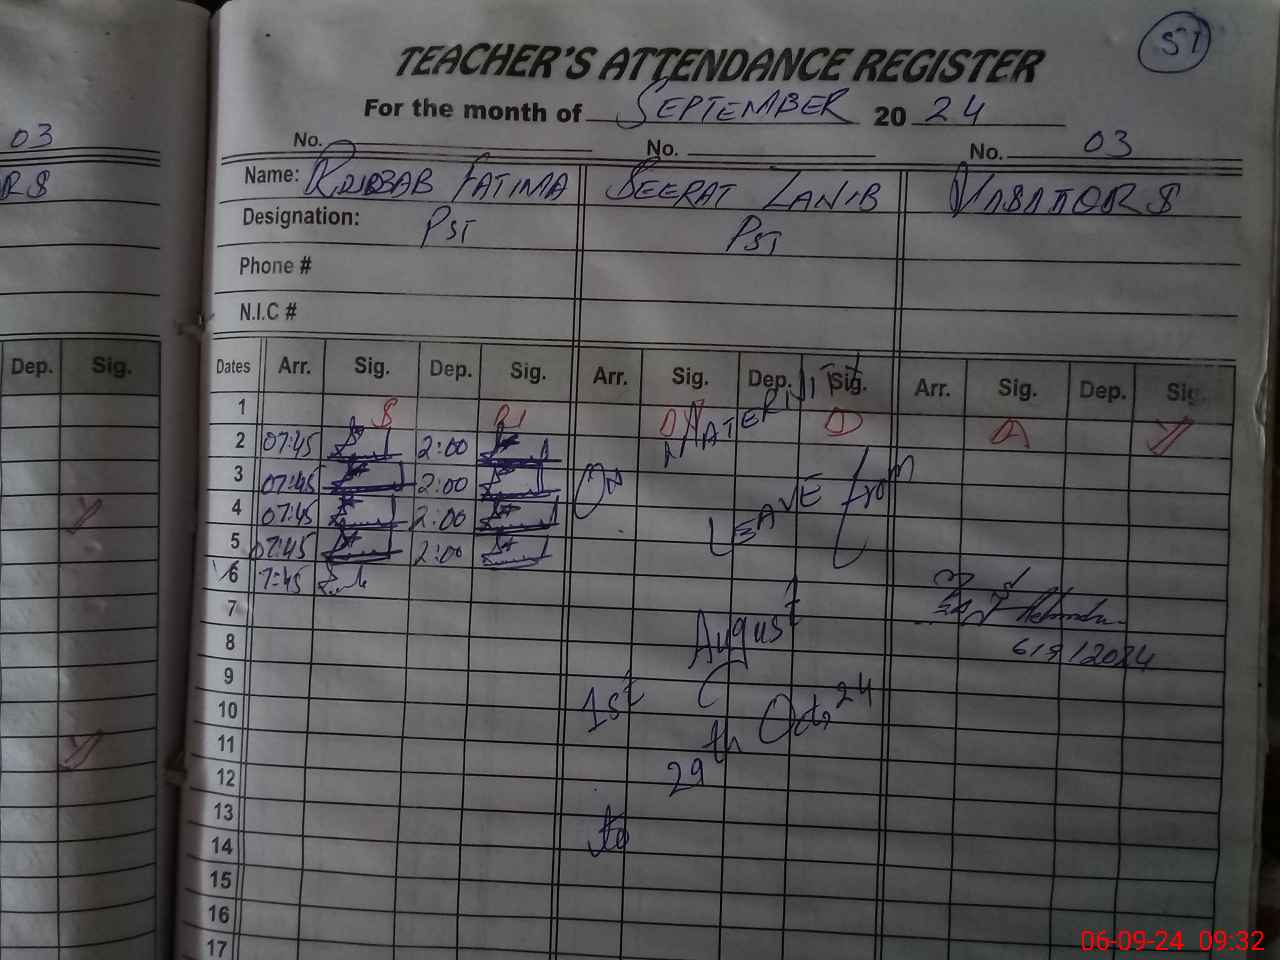 51
TEACHER'S ATTENDANCE REGISTER
For the month of SEPTEMBER 2024
03
No. No. No. 03
RS
Name: FATIMA SEERAT ZANIB VASATORS
Designation: PST PST
Phone #
N.I.C #
Dep. Sig.
Dates Arr. Sig. Dep. Sig. Arr. Sig. Dep. Sig. Arr. Sig. Dep. Sig.
1 S U N D A Y
2 07:45 2:00
3 07:45 2:00
4 07:45 2:00
5 07:45 2:00
6 7:45
On MATERNITY LEAVE from
7
8
6/9/2024
9
1st August
10
11
to 29th Oct, 24
12
13
14
15
16
17
Y
Y
06-09-24 09:32